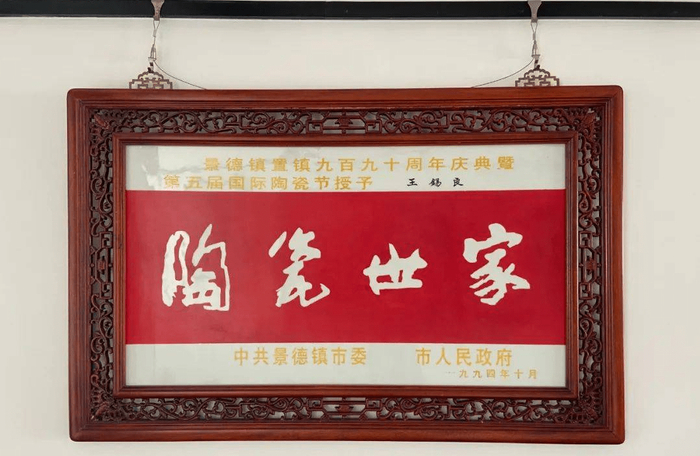 景德镇置镇九百九十周年庆典暨
第五届国际陶瓷节授予 王锡良
陶瓷世家
中共景德镇市委 市人民政府
一九九四年十月